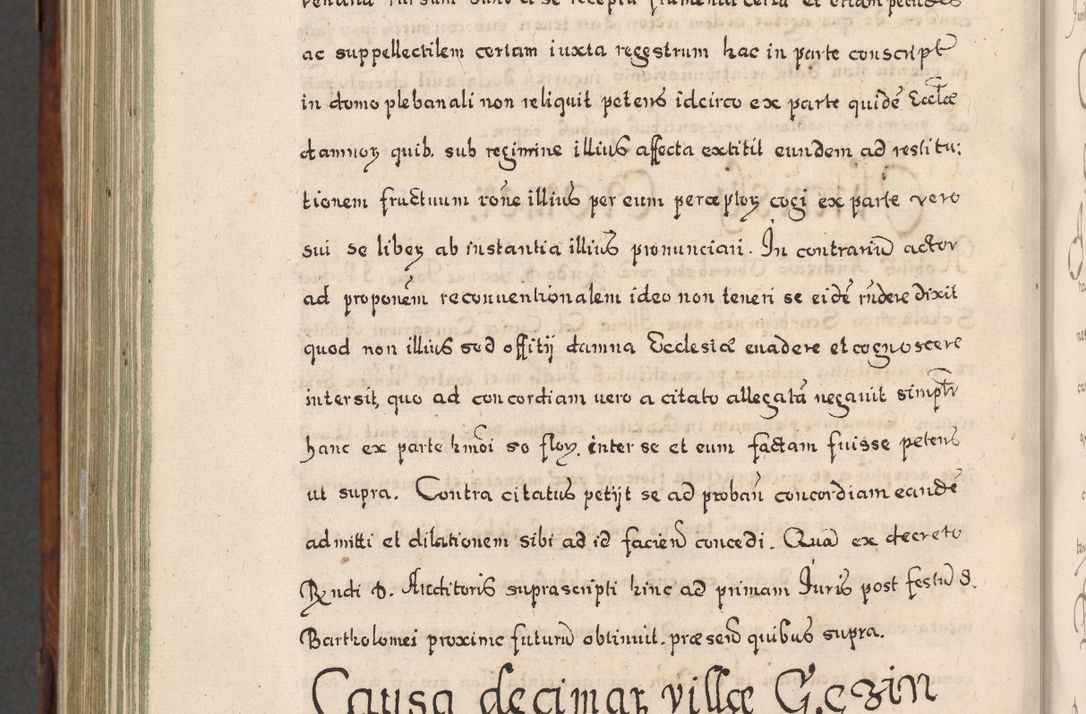 ac suppellectilem certam iuxta regestrum hac in parte conscript
in domo plebanali non reliquit petens idcirco ex parte quidē Eccłæ
damnoꝝ quib. sub regimine illius affecta extitit eundem ad restitu:
tionem fructuum rōne illius per eum perceptoꝝ cogi ex parte vero
sui se liberꝝ ab instantia illius pronunciari. In contrariū actor
ad proponēm reconuentionalem ideo non teneri se eidē rñdere dixit
quod non illius sed offitij damna Ecclesiæ euadere et cognoscere
intersit, quo ad concordiam uero a citato allegatā negauit simplr
hanc ex parte hmōi 50 floꝝ. inter se et eum factam fuisse petens
ut supra. Contra citatus petijt se ad probañ concordiam eandē
admitti et dilationem sibi ad id facieñ concedi. Quā ex decreto
Rñdi D. Auditoris suprascripti hinc ad primam Iuris post festū S.
Bartholomei proxime futurū obtinuit. præseñ quibus supra.
Causa decimaꝝ villæ